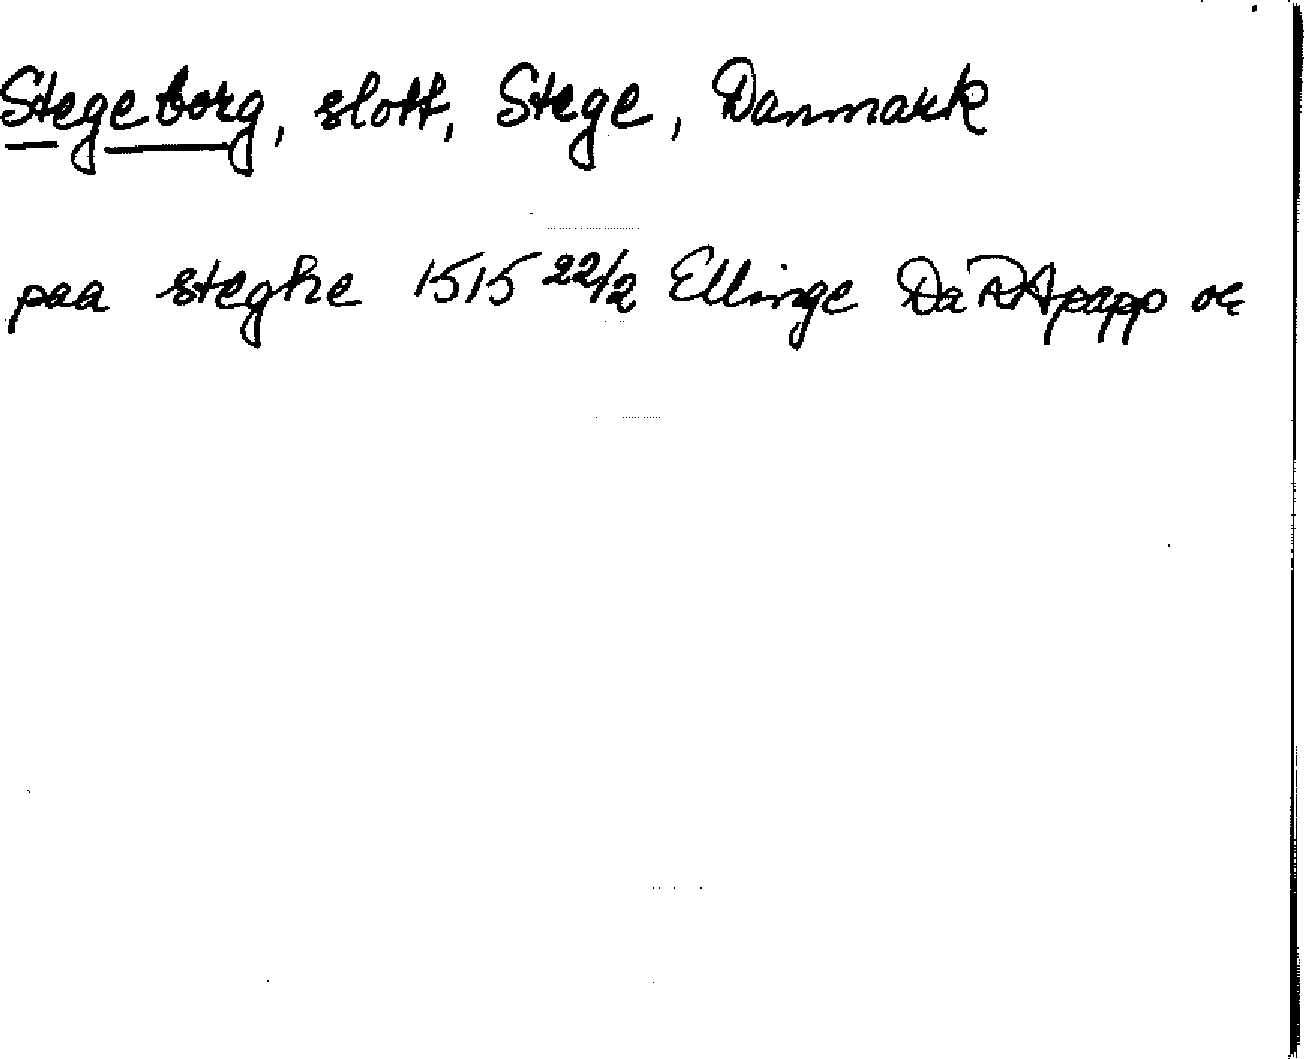 Stegeborg, slott, Stege, Danmark
paa steghe 1515 22/2 Ellinge Da RA papp or